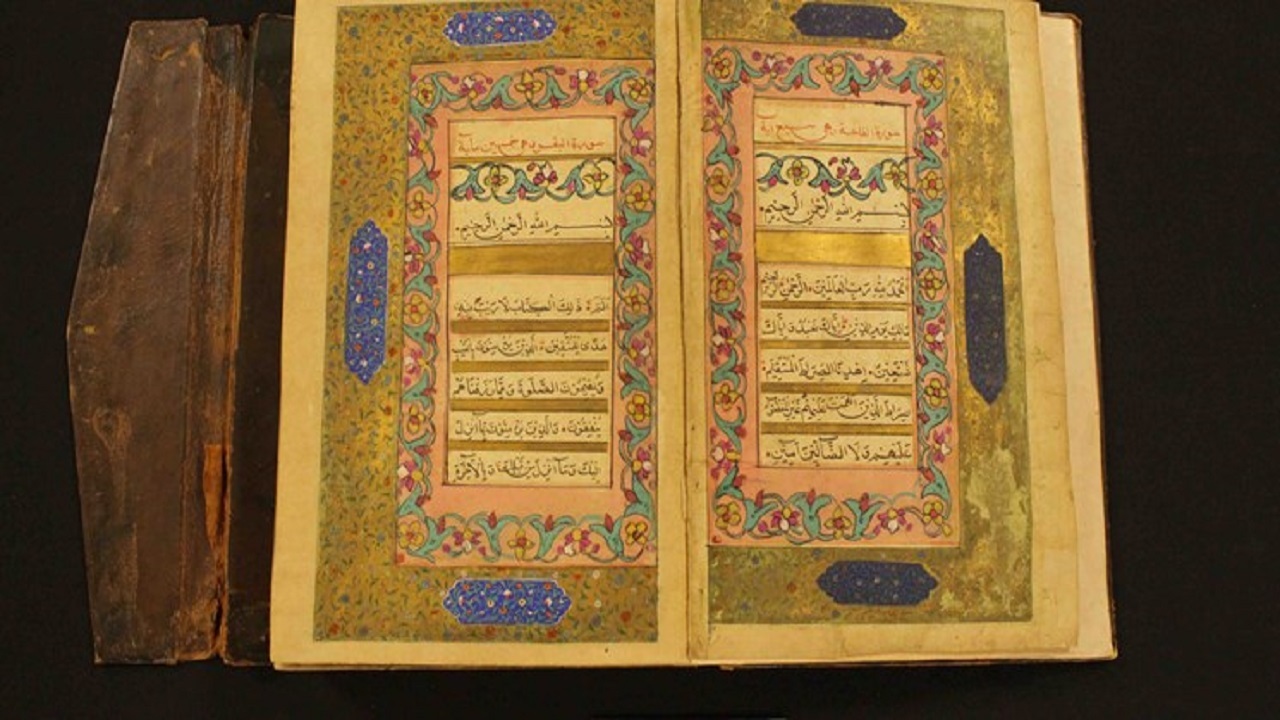 سورة الفاتحة
بِسْمِ اللهِ الرَّحْمٰنِ الرَّحِيْمِ
اَلْحَمْدُ لِلّٰهِ رَبِّ الْعَالَمِيْنَ الرَّحْمٰنِ الرَّحِيْمِ
مَالِكِ يَوْمِ الدِّيْنِ اِيَّاكَ نَعْبُدُ وَاِيَّاكَ
نَسْتَعِيْنُ اِهْدِنَا الصِّرَاطَ الْمُسْتَقِيْمَ
صِرَاطَ الَّذِيْنَ اَنْعَمْتَ عَلَيْهِمْ غَيْرِ الْمَغْضُوْبِ
عَلَيْهِمْ وَلَا الضَّالِّيْنَ آمِيْنَ
سورة البقرة
بِسْمِ اللهِ الرَّحْمٰنِ الرَّحِيْمِ
الٓمٓ ذٰلِكَ الْكِتَابُ لَا رَيْبَ فِيْهِ
هُدًى لِلْمُتَّقِيْنَ الَّذِيْنَ يُؤْمِنُوْنَ بِالْغَيْبِ
وَيُقِيْمُوْنَ الصَّلٰوةَ وَمِمَّا رَزَقْنَاهُمْ
يُنْفِقُوْنَ وَالَّذِيْنَ يُؤْمِنُوْنَ بِمَا اُنْزِلَ
اِلَيْكَ وَمَا اُنْزِلَ مِنْ قَبْلِكَ وَبِالْاٰخِرَةِ